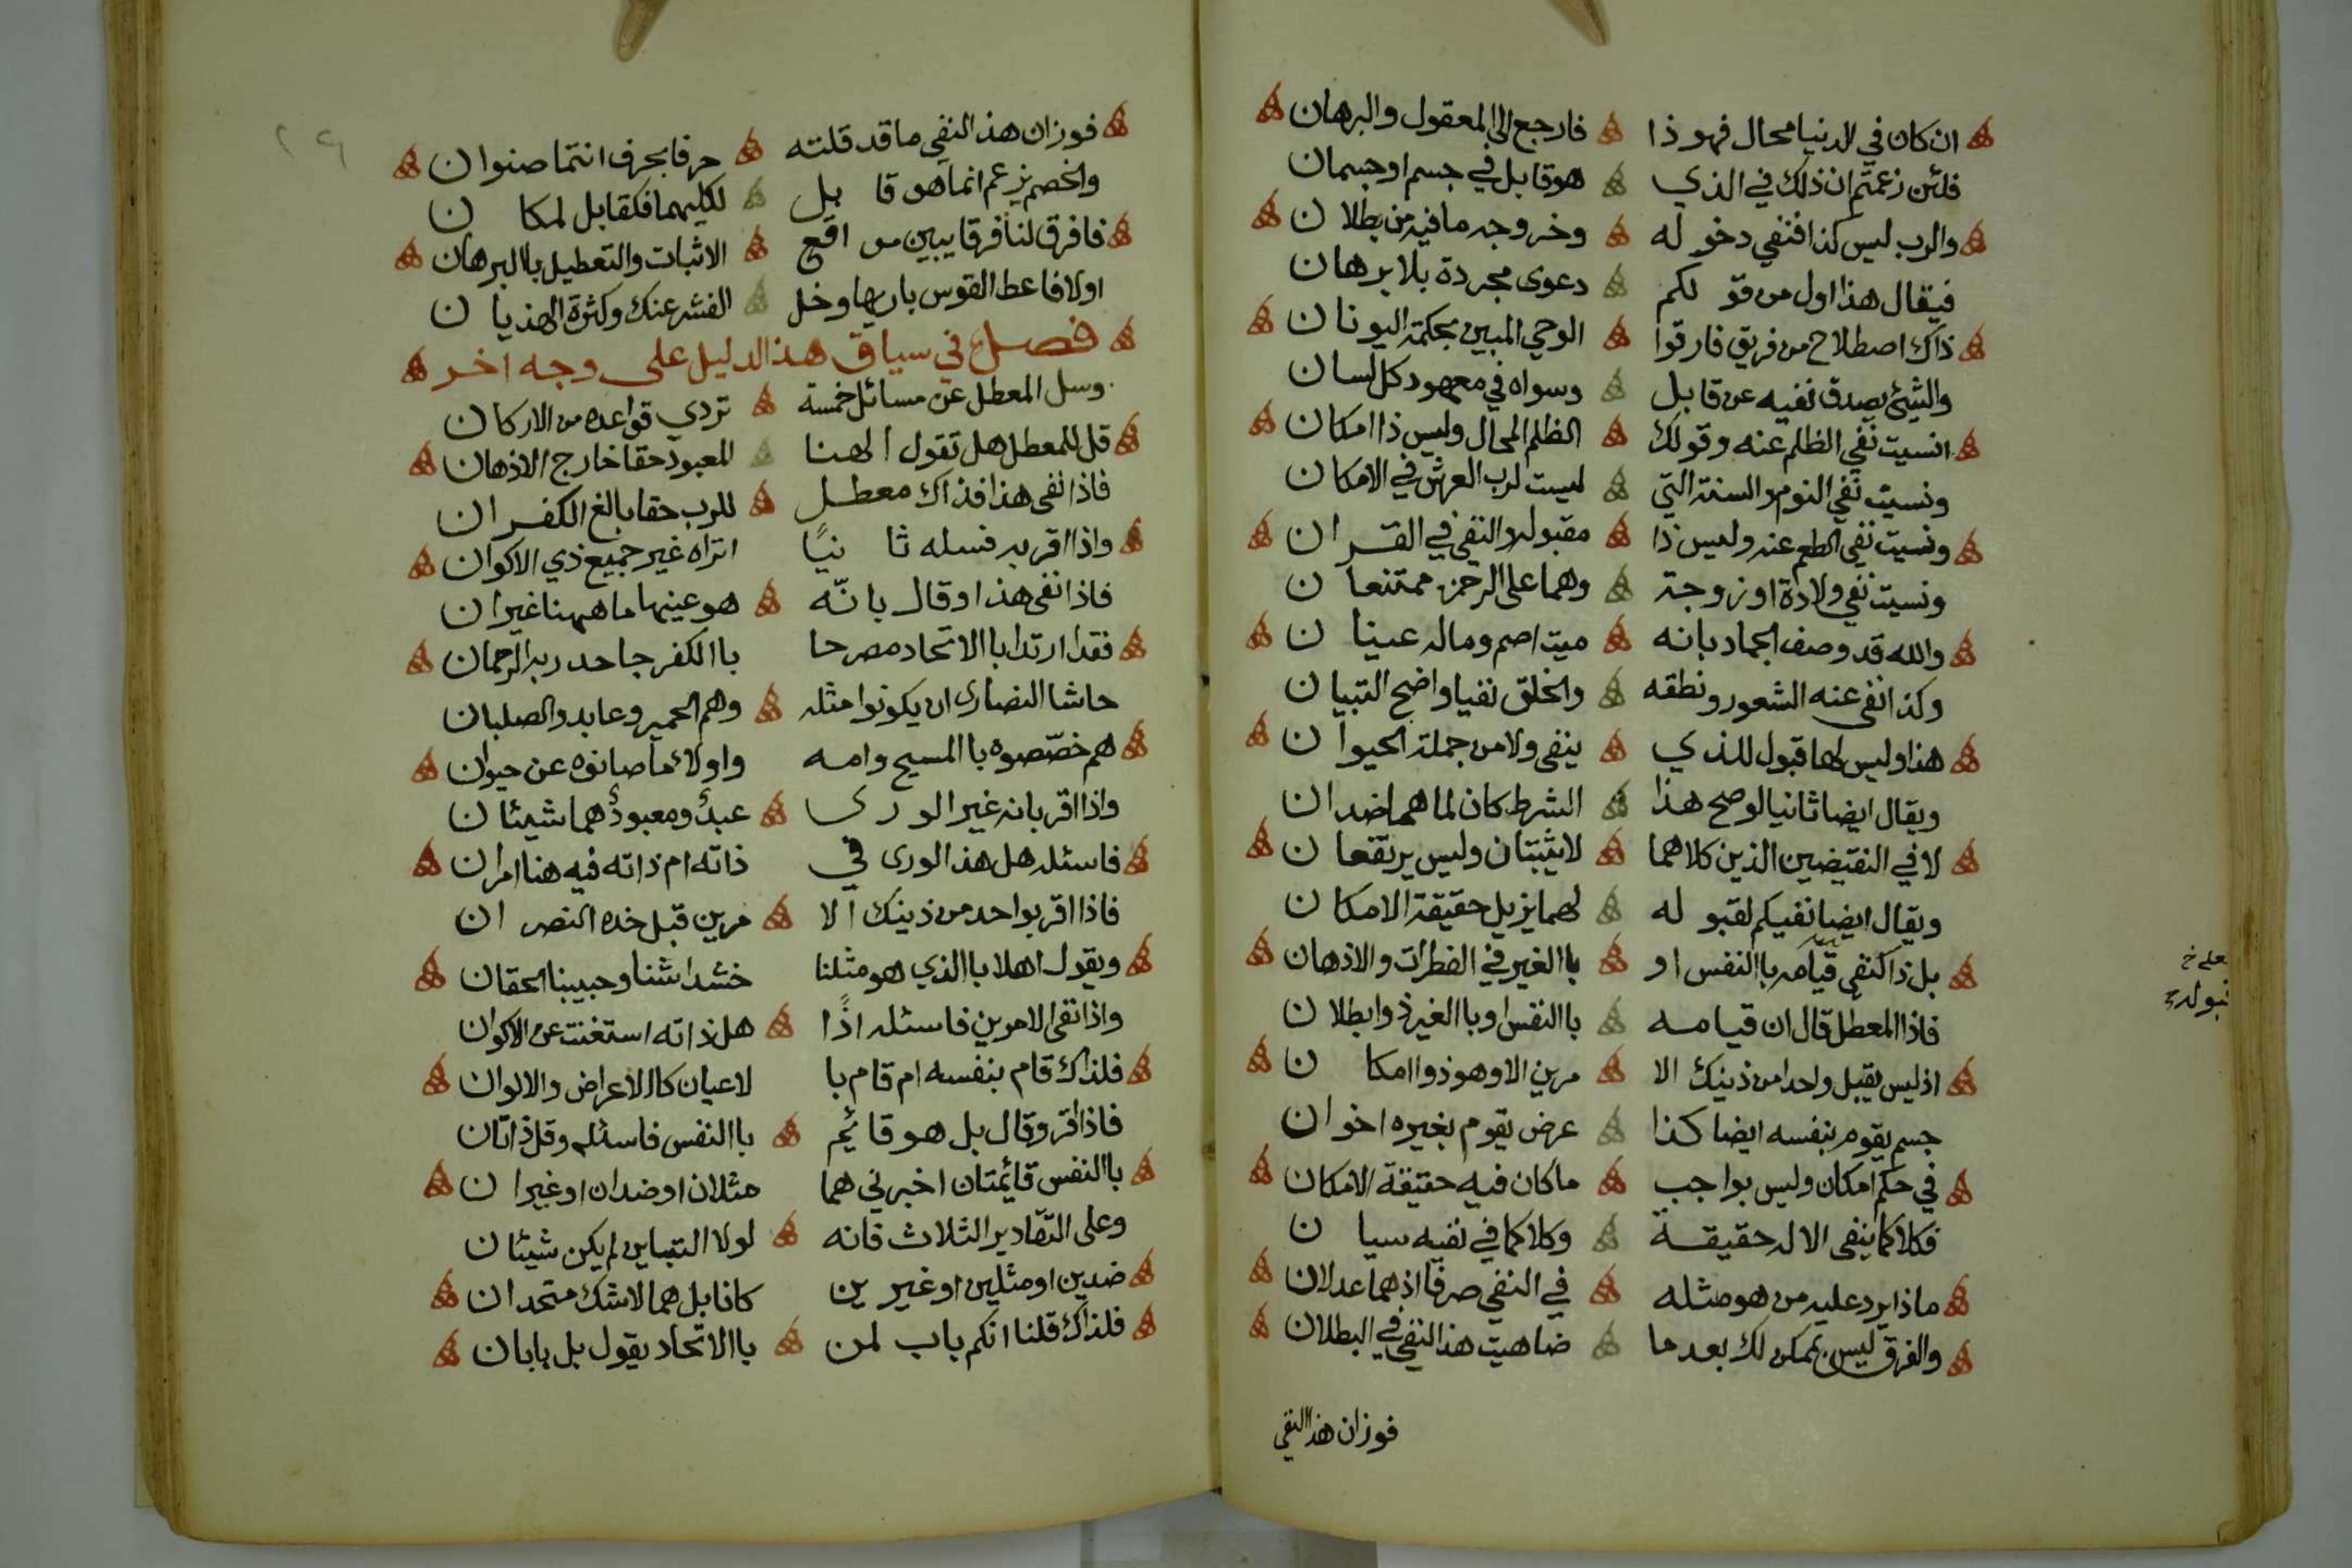 ان كان في الدنيا محال فهو ذا فارجع الى المعقول والبرهان
فلئن زعمتم ان ذلك في الذي هو قابل في جسم او جسمان
والرب ليس كذا فنفي دخوله وخروجه ما فيه من بطلان
فيقال هذا اول من قولكم دعوى مجردة بلا برهان
ذاك اصطلاح من فريق فارقوا الوحي المبين بحكمة اليونان
والشيئ يصدق نفيه عن قابل وسواه في معهود كل لسان
انسيت نفي الظلم عنه وقولك الظلم المحال وليس ذا امكان
ونسيت نفي النوم والسنة التي ليست لرب العرش في الامكان
ونسيت نفي الطعم عنه وليس ذا مقبوله والنفي في القران
ونسيت نفي ولادة او زوجة وهما على الرحمن ممتنعان
والله قد وصف الجماد بانه ميت اصم وماله عينان
وكذا نفى عنه الشعور ونطقه والخلق نفيا واضح التبيان
هذا وليس لها قبول للذي ينفى ولا من جملة الحيوان
ويقال ايضا ثانيا لو صح هذا الشرط كان لما هما ضدان
لا في النقيضين الذين كلاهما لا يثبتان وليس يرتفعان
ويقال ايضا نفيكم لقبوله لهما يزيل حقيقة الامكان
بل ذا كنفي قيامه باالنفس او باالغير في الفطرات والاذهان
فاذا المعطل قال ان قيامه باالنفس او باالغير ذو ابطلان
اذ ليس يقبل واحدا من ذينك الا مرين الا وهو ذو امكان
جسم يقوم بنفسه ايضا كذا عرض يقوم بغيره اخوان
في حكم امكان وليس بواجب ما كان فيه حقيقة الامكان
فكلاكما ينفي الاله حقيقة وكلاكما في نفيه سيان
ماذا يرد عليه من هو مثله في النفي صرفا اذ هما عدلان
والفرق ليس بممكن لك بعد ما ضاهيت هذا النفي في البطلان
فوزان هذا النفي
فوزان هذ النفي ما قد قلته حرفا بحرف انتما صنوان
والخصم يزعم انما هو قابل لكليهما فكقابل لمكان
فافرق لنا فرقا يبين مواقع الاثبات والتعطيل باالبرهان
اولا فاعط القوس باريها وخل الفشر عنك وكثرة الهذيان
فصل في سياق هذ الدليل على وجه اخر
وسل المعطل عن مسائل خمسة تردي قواعده من الاركان
قل للمعطل هل تقول الهنا المعبود حقا خارج الاذهان
فاذا نفى هذا فذاك معطل للرب حقا بالغ الكفران
واذا اقر به فسله ثانيًا اتراه غير جميع ذي الاكوان
فاذا نفى هذا وقال بانّه هو عينها ما ههنا غيران
فقد ارتدا باالاتحاد مصرحا باالكفر جاحد ربه الرحمان
حاشا النصارى ان يكونوا مثله وهم الحمير وعابدو الصلبان
هم خصّصوه باالمسيح وامه واولاء ما صانوه عن حيوان
واذا اقر بانه غير الورى عبد ومعبود هما شيئان
فاسئله هل هذ الورى في ذاته ام ذاته فيه هنا امران
فاذا اقر بواحد من ذينك الا مرين قبل خده النصران
ويقول اهلا باالذي هو مثلنا خشداشنا وحبيبنا الحقان
واذا نفى الامرين فاسئله اذًا هل ذاته استغنت عن الاكوان
فلذاك قام بنفسه ام قام با لاعيان كاالاعراض والالوان
فاذا اقر وقال بل هو قائم باالنفس فاسئله وقل ذاتان
باالنفس قائمتان اخبرني هما مثلان او ضدان او غيران
وعلى التقادير الثلاث فانه لولا التباين لم يكن شيئان
ضدين او مثلين او غيرين كانا بل هما لا شك متحدان
فلذاك قلنا انكم باب لمن باالاتحاد يقول بل بابان